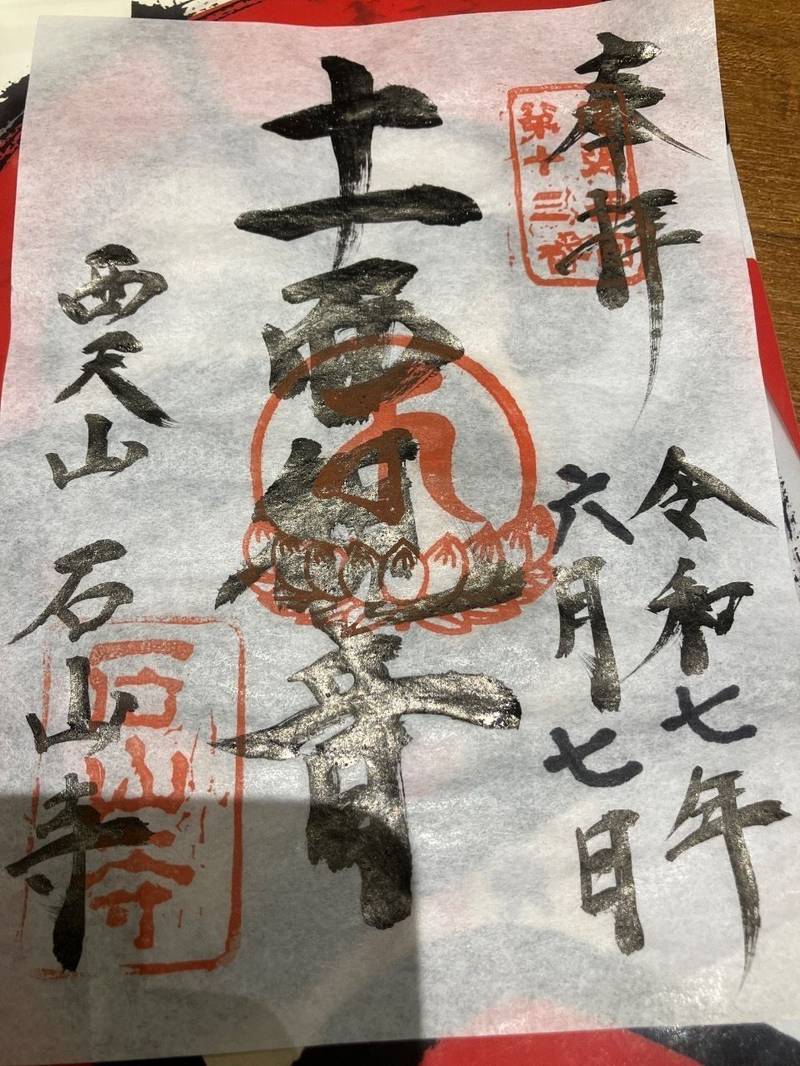 奉拝
第十三番
令和七年
六月七日
十一面観音
西天山 石山寺
石山寺